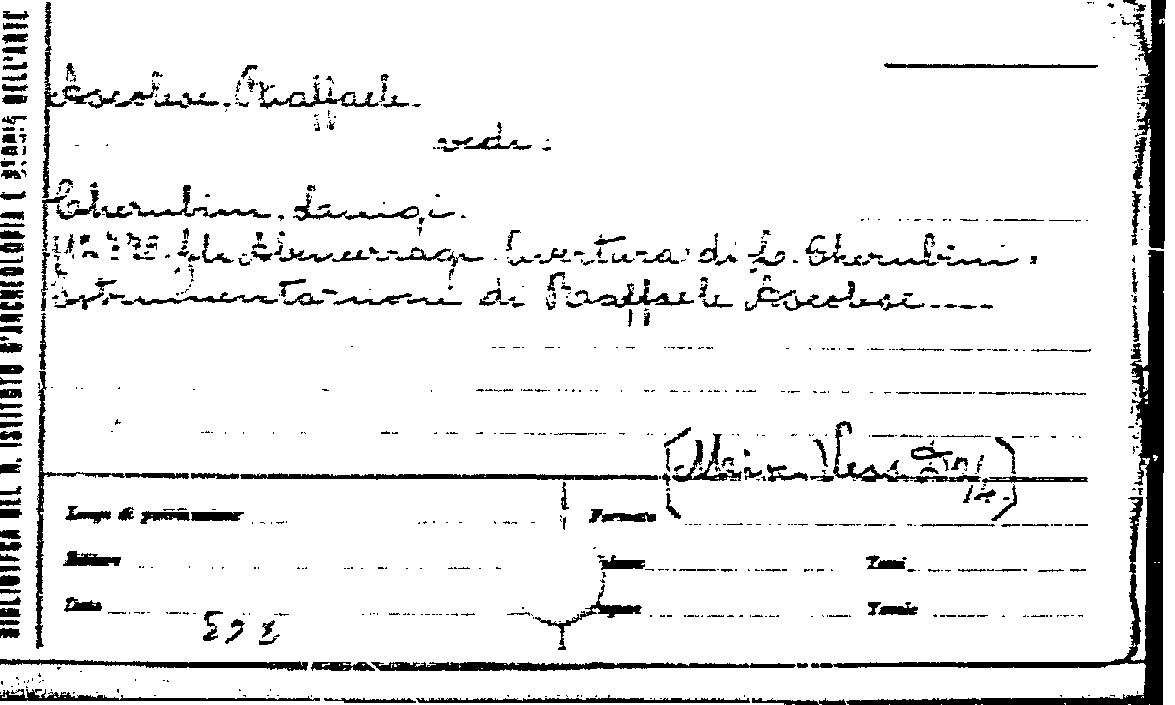 BIBLIOTECA DEL R. ISTITUTO D'ARCHEOLOGIA E STORIA DELL'ARTE
Ascolese, Raffaele.
vedi:
Cherubini, Luigi.
Gli Abencerragi. Overtura di L. Cherubini.
Istrumentazione di Raffaele Ascolese....
Luogo di pubblicazione
Formato
Editore
Volume
Tomi
Data
Pagine
Tavole